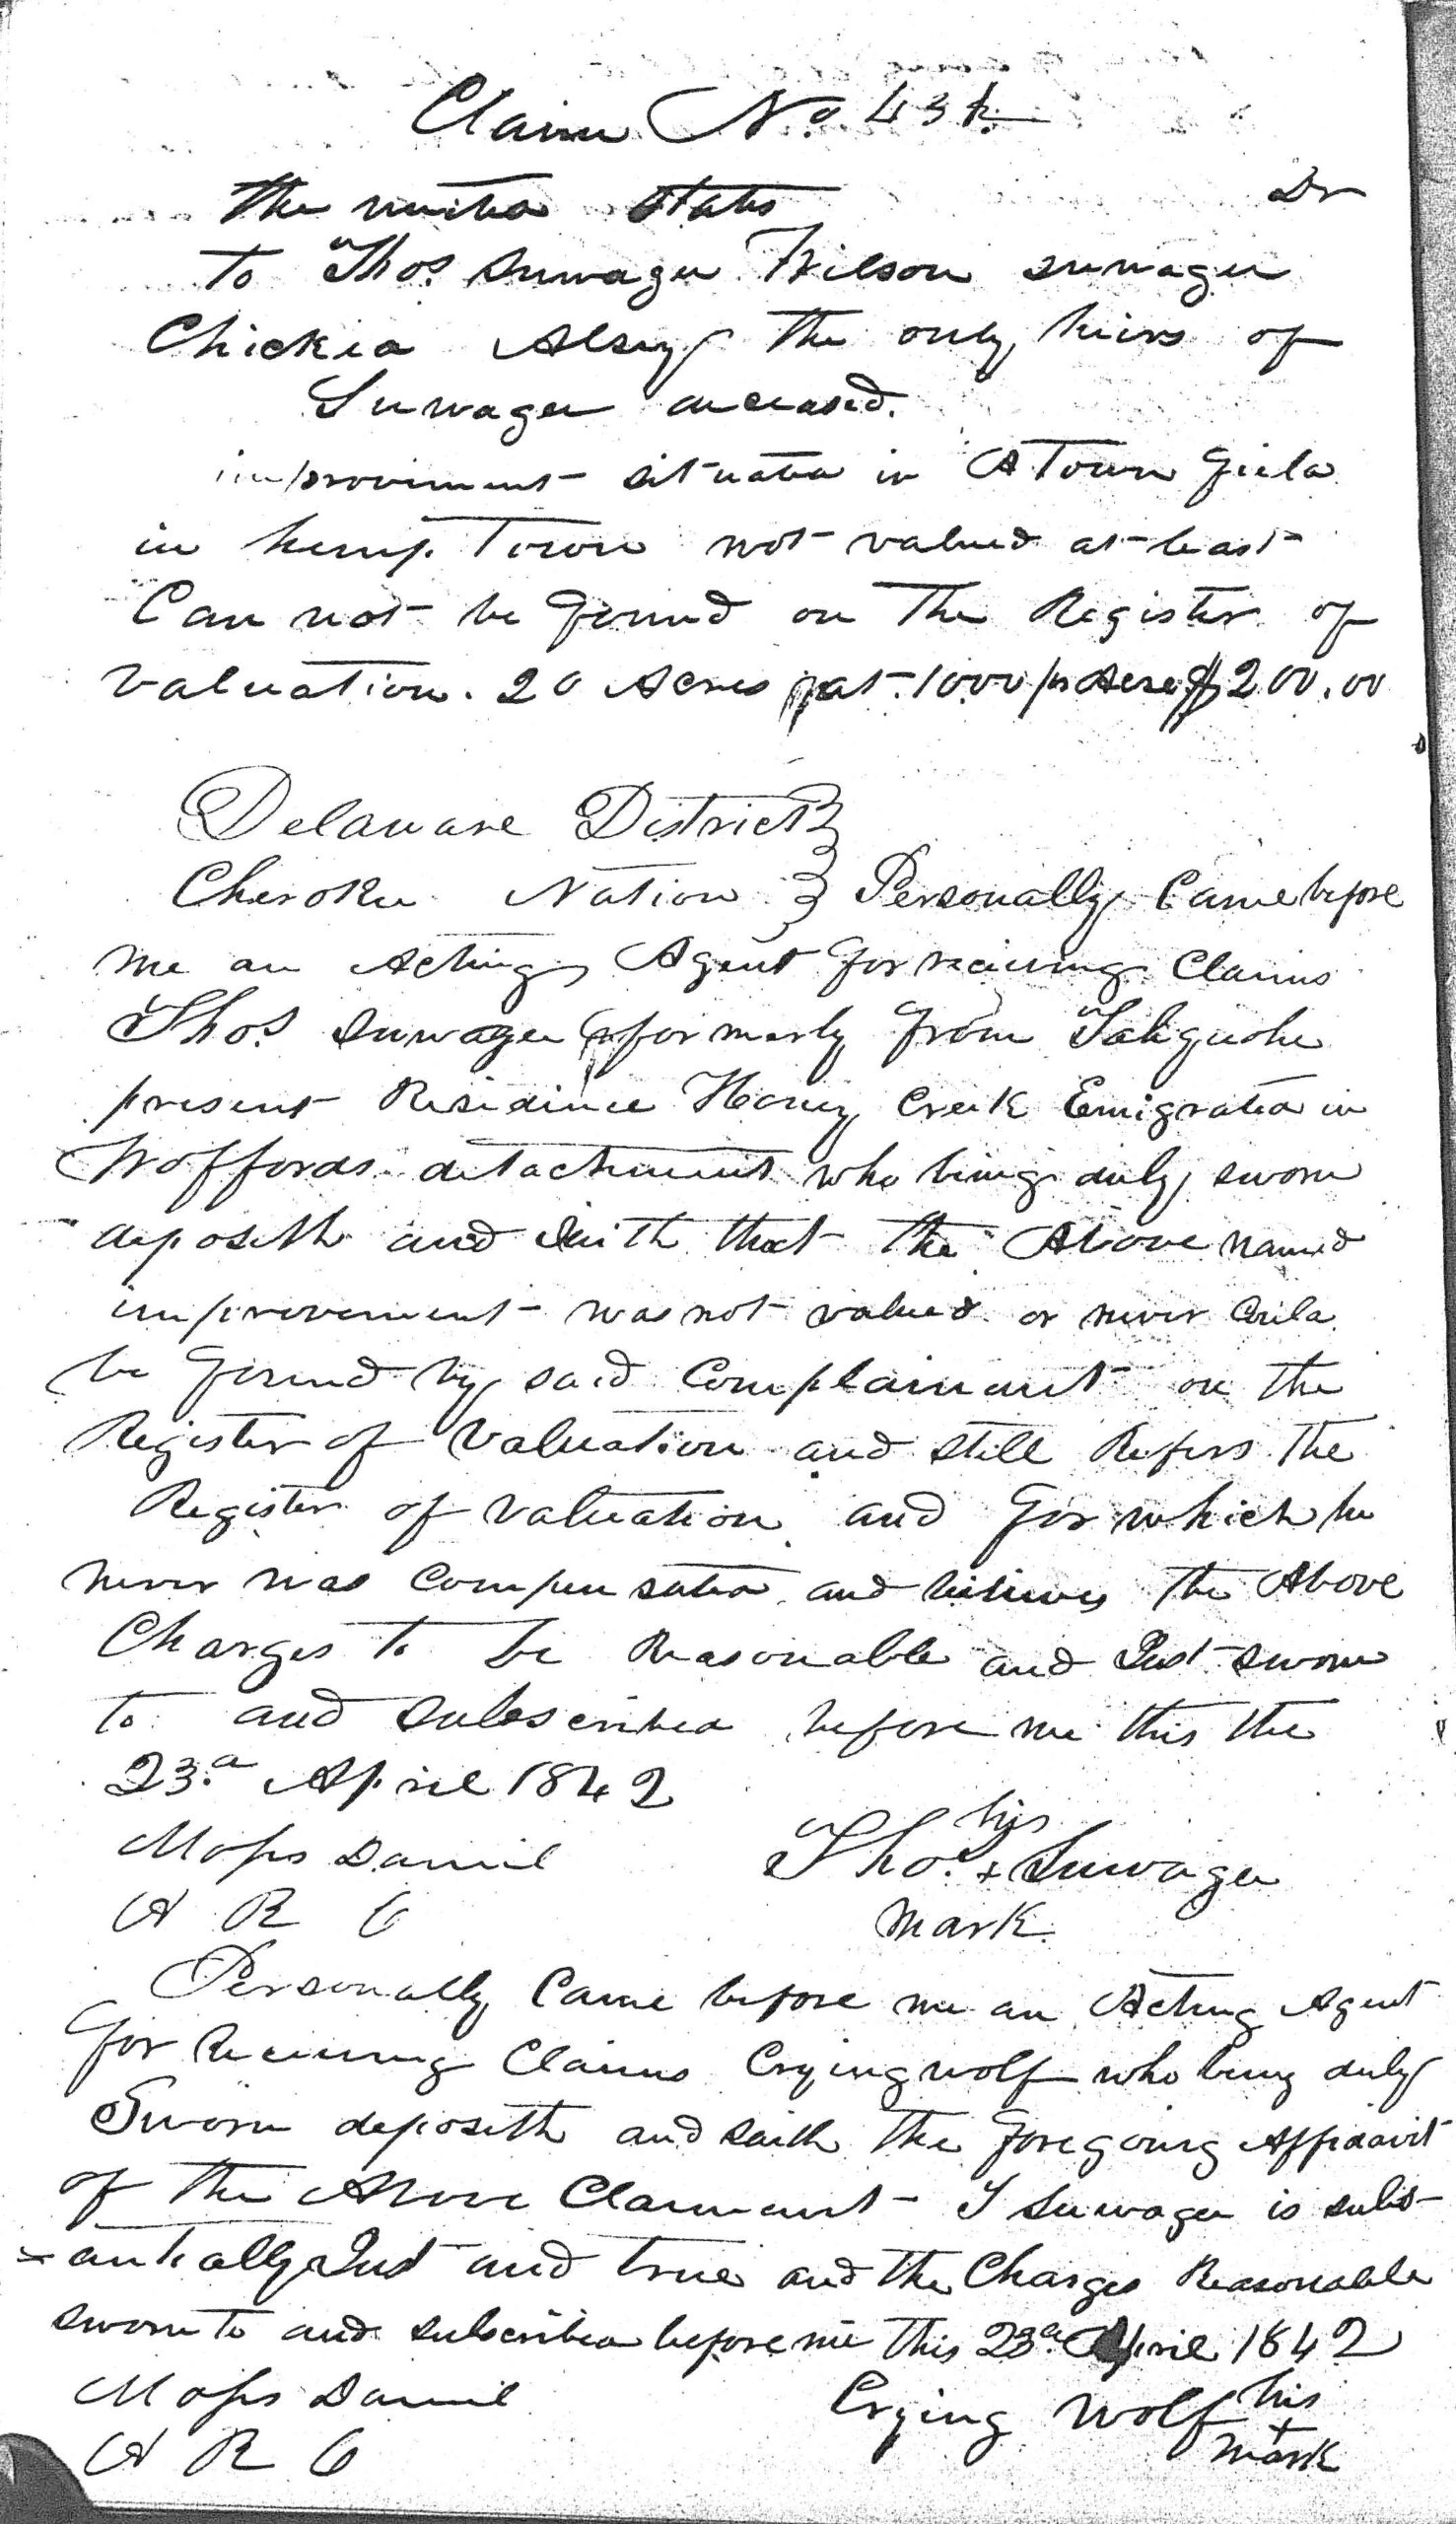 Claim No. 43
The united States Dr
To Thos. Suwagee Wilson suwagee
Chickia Alsey the only heirs of
Suwagee deceased.
improvement situated in A Town field
in hemp Town not valued at least
Can not be found on The Register of
valuation. 20 Acres at 1000 pr Acre $200.00
Delaware District }
Cherokee Nation } Personally Came before
me an Acting Agent for receiving Claims
Thos Suwagee formerly from
present Residence Honey Creek Emigrated in
Woffords detachment who being duly sworn
deposeth and saith that the Above named
improvement was not valued or never Could
be found by said Complainant on the
Register of Valuation and still Refers the
Register of valuation and for which he
never was Compensated and believes the Above
Charges to be Reasonable and Just sworn
to and subscribed before me this the
23.d April 1842
Moses Daniel
his
Tho. + Suwagee
A R C
mark
Personally Came before me an Acting Agent
for Receiving Claims Crying wolf who being duly
Sworn deposeth and saith the foregoing Affidavit
of the Above Claimant T Suwagee is subst
=antially Just and true and the Charges Reasonable
sworn to and subscribed before me this 23d April 1842
Moses Daniel
Crying Wolf his
+
A R C
mark